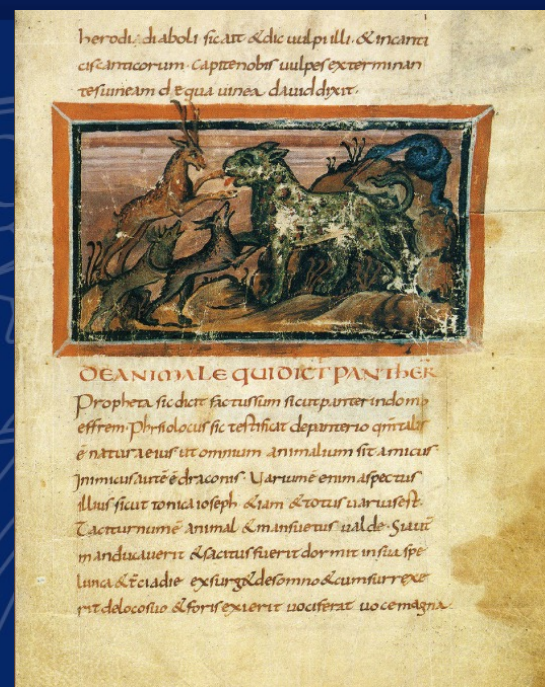 herodi. diaboli sicait & dic uulpi illi. & in canti
cis canticorum. Capite nobis uulpes exterminan
tes uineam de qua uinea dauid dixit.
DE ANIMALE QUI DICT PANTHER
Propheta sic dicit factus sum sicut panter indomo
effrem. Phisiolocus sic testificat de panterio qm talis
ē natura eius ut omnium animalium sit amicus
Inimicus autē ē draconis. Uariumē enim aspectus
illius sicut tonica ioseph & iam & totus uarius est.
Taciturnumē animal & mansuetus ualde. Siaut
manducauerit & saciatus fuerit dormit in sua spe
lunca & tercia die exsurg& desomno & cum surrexe
rit de loco suo & foris exierit uociferat uoce magna.